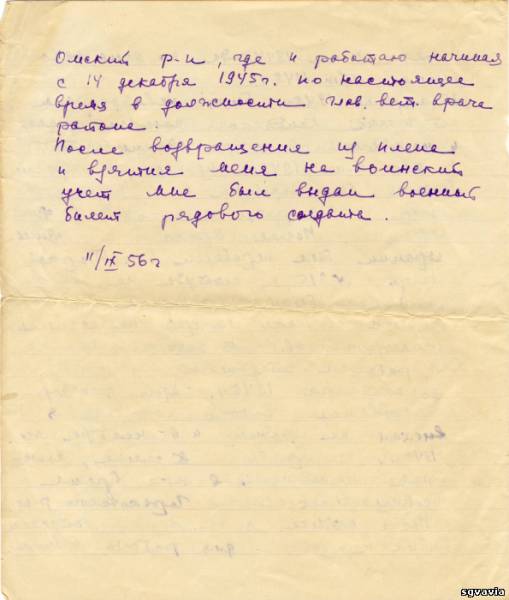 Омский р-н, где и работаю начиная
с 14 декабря 1945г. по настоящее
время в должности глав. вет. врача
района
После возвращения из плена
и взятия меня на воинский
учет мне был выдан военный
билет рядового солдата.
11/IX 56 г
sgvavia